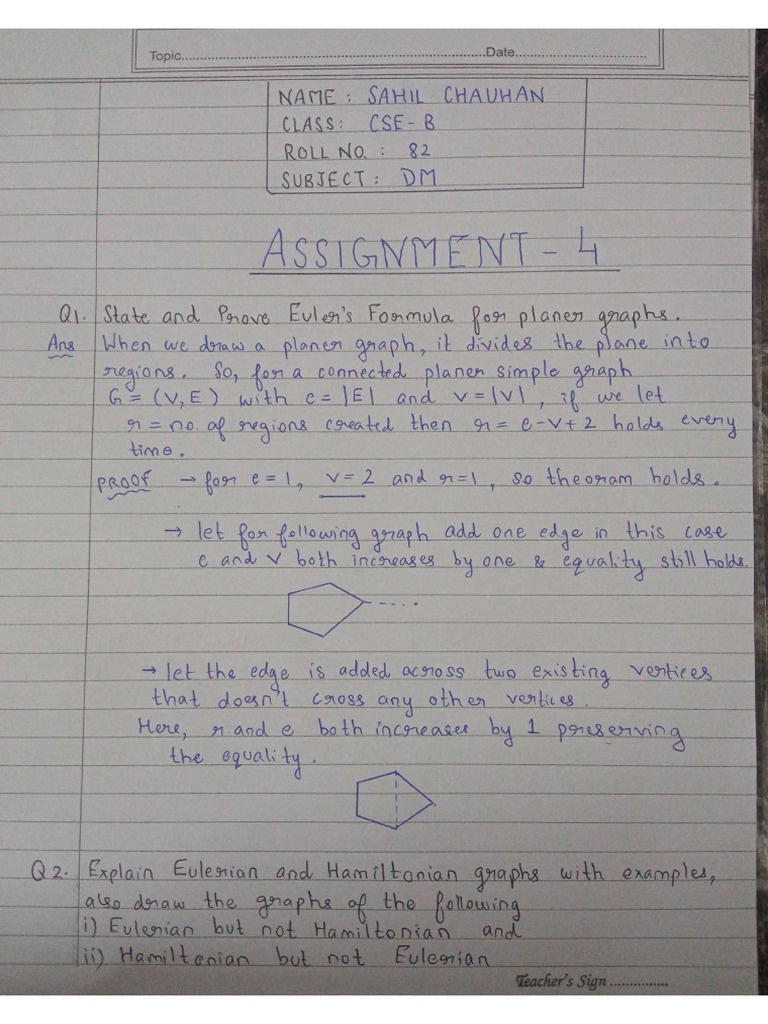 Topic..........................................................................Date..................................
NAME : SAHIL CHAUHAN
CLASS: CSE-B
ROLL NO. : 82
SUBJECT : DM
ASSIGNMENT - 4
Q1. State and Prove Euler's Formula for planer graphs.
Ans When we draw a planer graph, it divides the plane into
regions. So, for a connected planer simple graph
G = (V, E) with e = |E| and v = |V| , if we let
r = no. of regions created then r = e-v+2 holds every
time.
PROOF → for e = 1, v = 2 and r=1, so theoram holds.
→ let for following graph add one edge in this case
e and v both increases by one & equality still holds.
→ let the edge is added across two existing vertices
that doesn't cross any other vertices.
Here, r and e both increases by 1 preserving
the equality.
Q2. Explain Eulerian and Hamiltonian graphs with examples,
also draw the graphs of the following
i) Eulerian but not Hamiltonian and
ii) Hamiltonian but not Eulerian
Teacher's Sign ...............